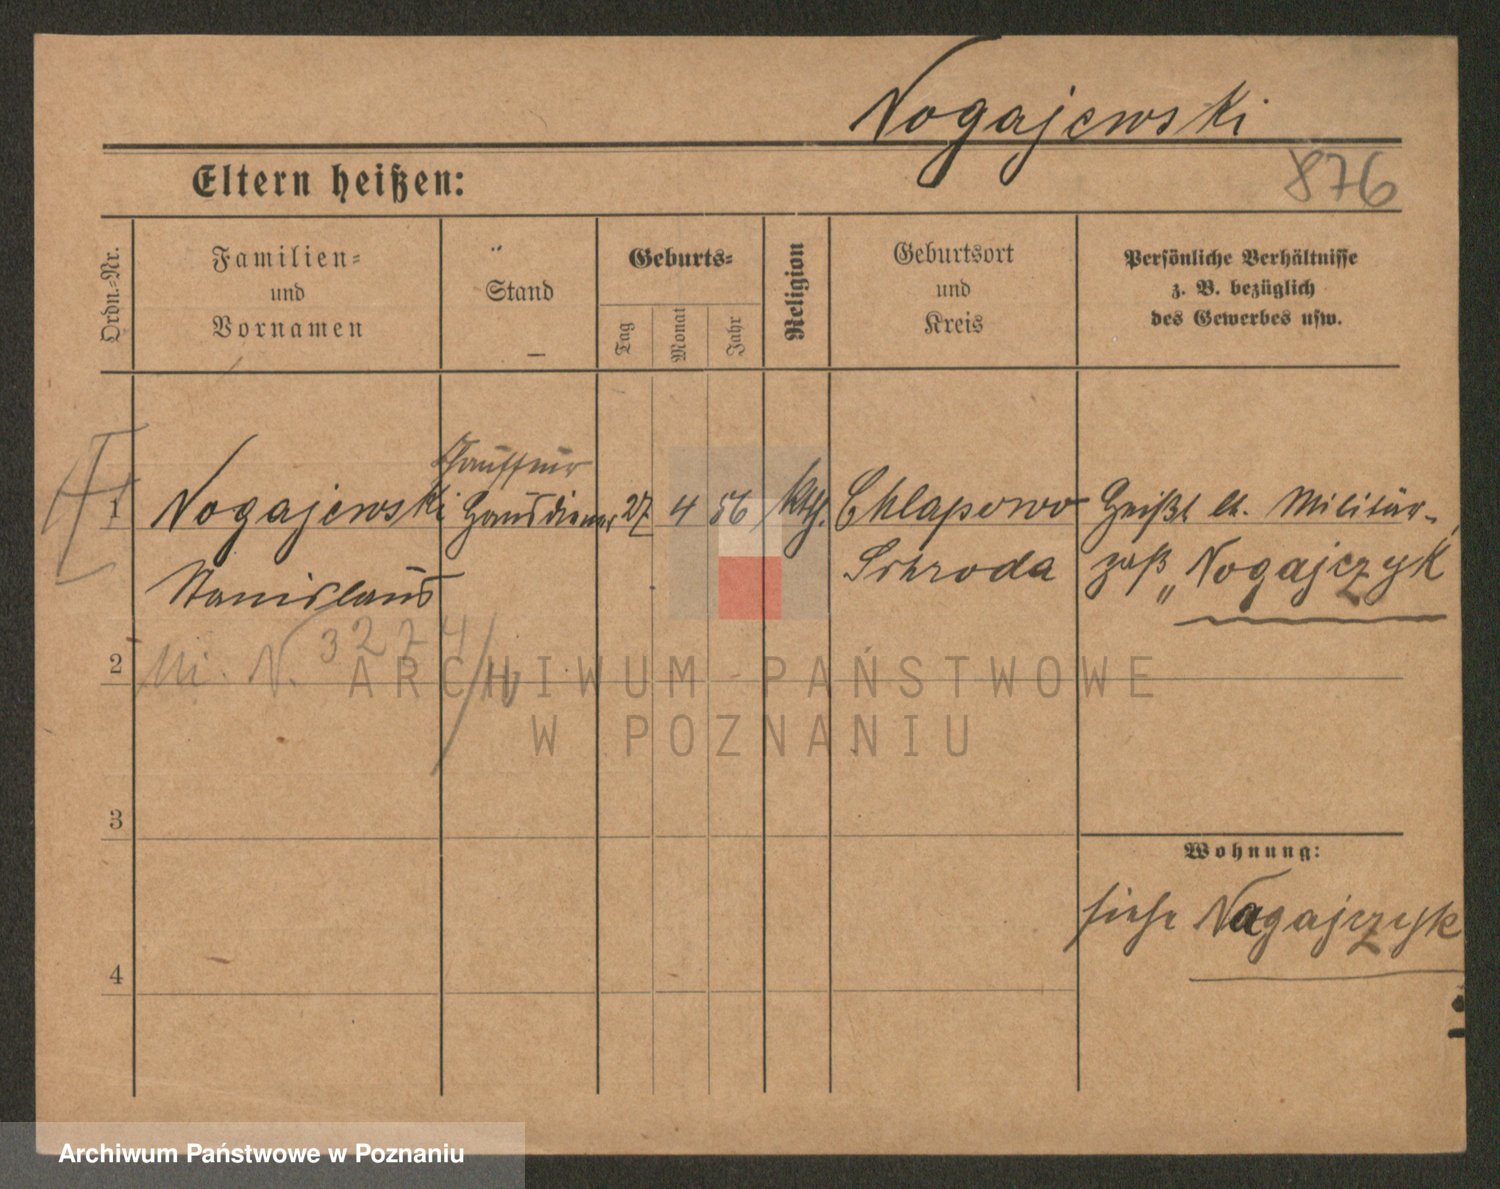 Nogajewski
876
Eltern heißen:
Ordn.-Nr.
Familien-
und
Vornamen
Stand
Geburts-
Tag
Monat
Jahr
Religion
Geburtsort
und
Kreis
Persönliche Verhältnisse
z. B. bezüglich
des Gewerbes usw.
Chauffeur
1 Nogajewski Hausdiener 27 4 56 kth. Chlapowo Heißt lt. Militär-
Stanislaus Schroda paß „Nogajczyk
2 Mi. N. 3274/
3
Wohnung:
siehe Nagajczyk
4
ARCHIWUM PAŃSTWOWE
W POZNANIU
Archiwum Państwowe w Poznaniu